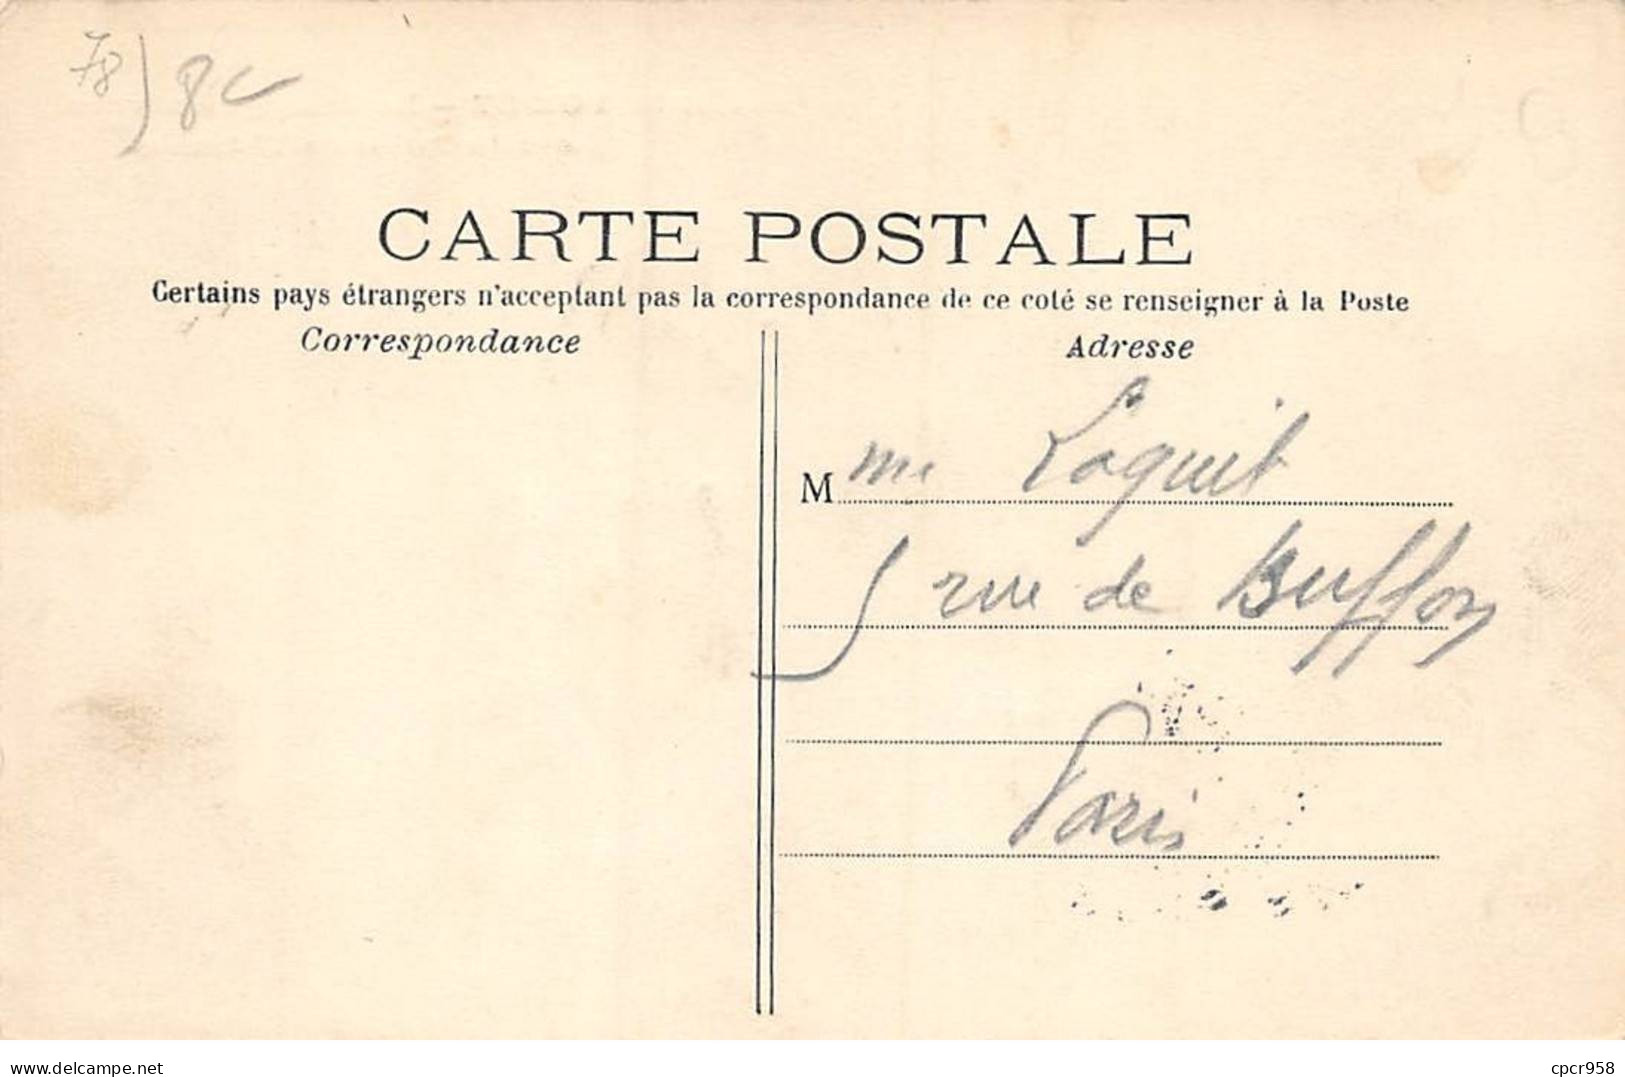 78) 8c
CARTE POSTALE
Certains pays étrangers n'acceptant pas la correspondance de ce coté se renseigner à la Poste
Correspondance
Adresse
M me Laquit
5 rue de Buffon
Paris
www.delcampe.net
cpcr958